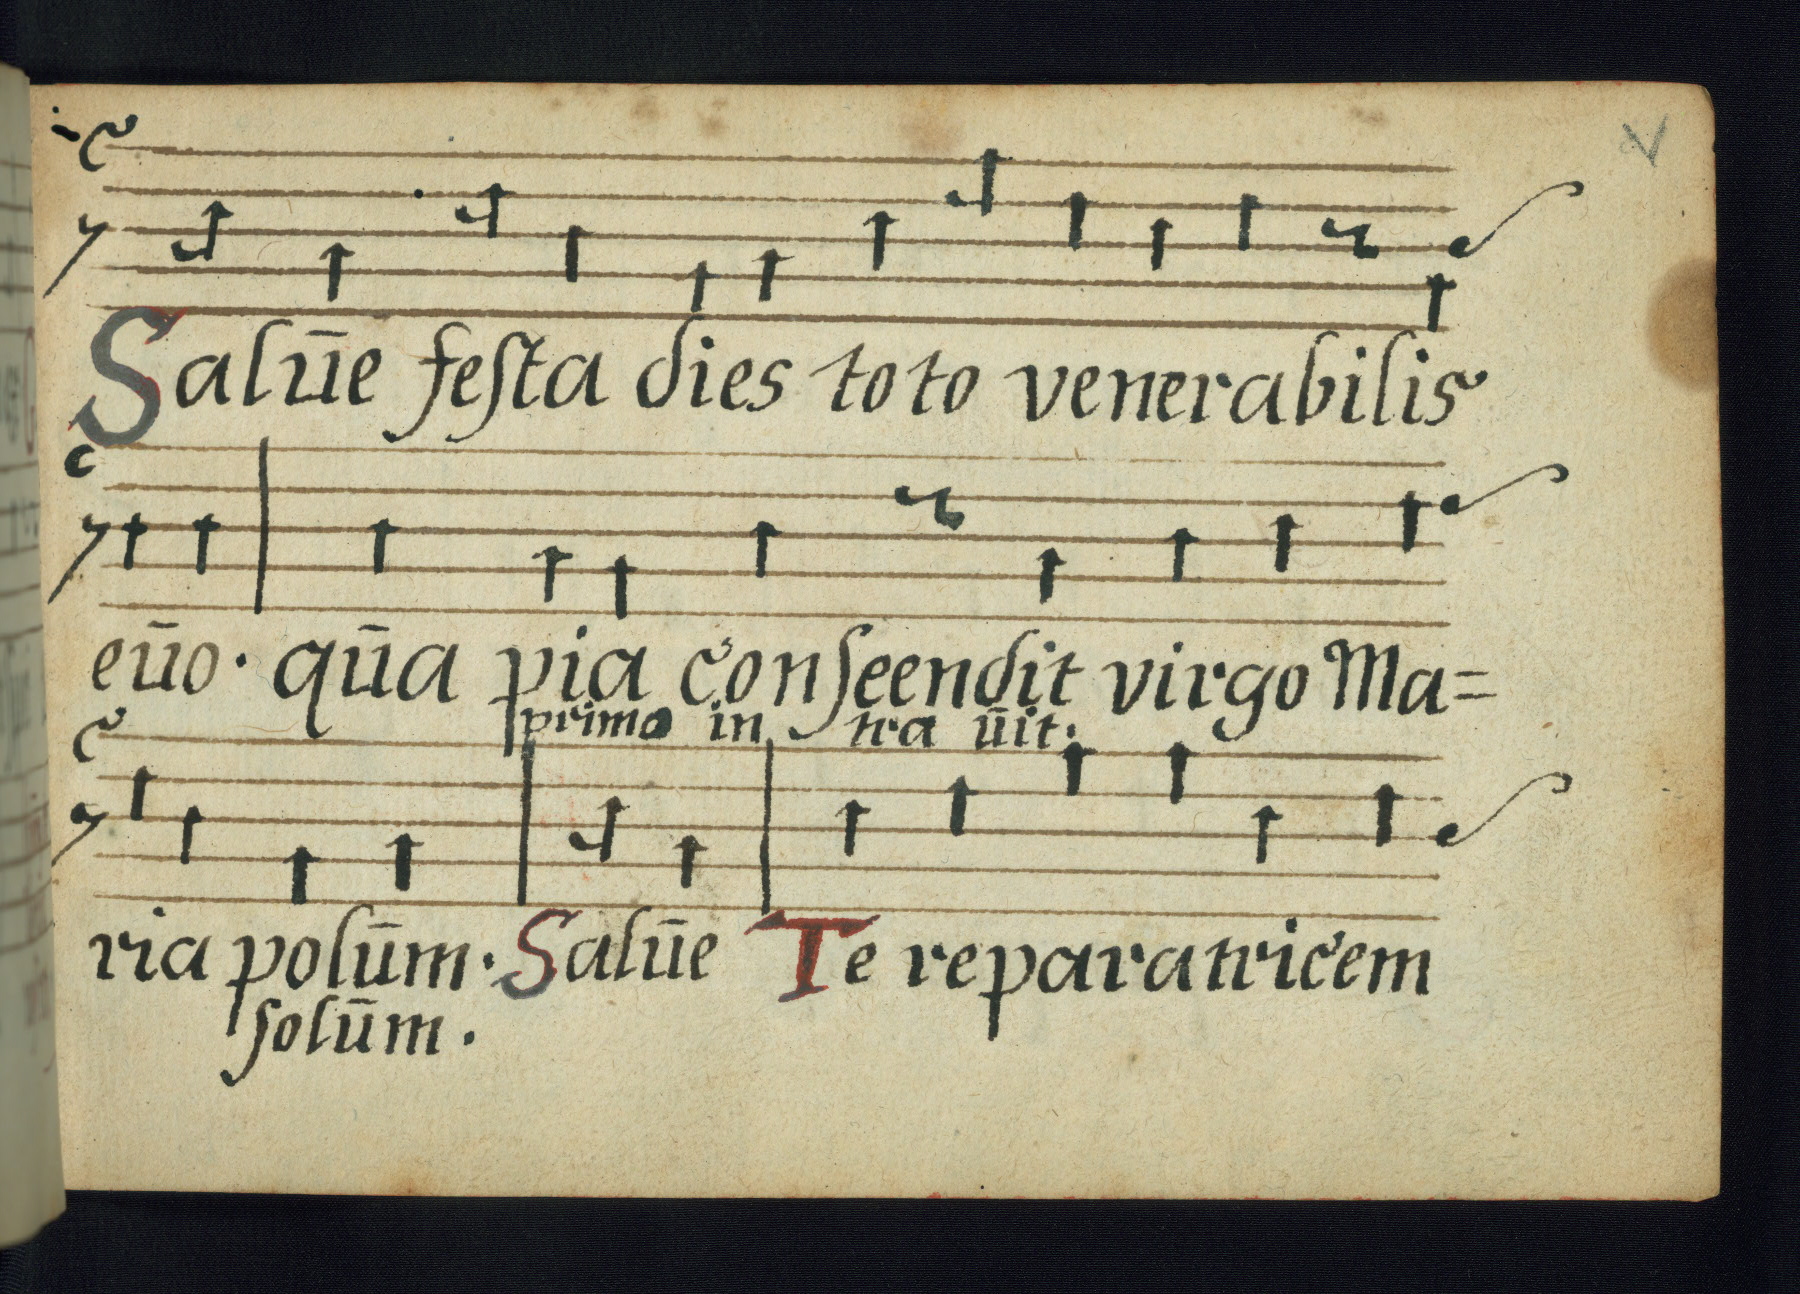 Salūe feſta dies toto venerabilis
eūo · qūa pia conſeendit virgo Ma=
primo in tra ūit.
ria polūm · Salūe Te reparatricem
ſolūm .